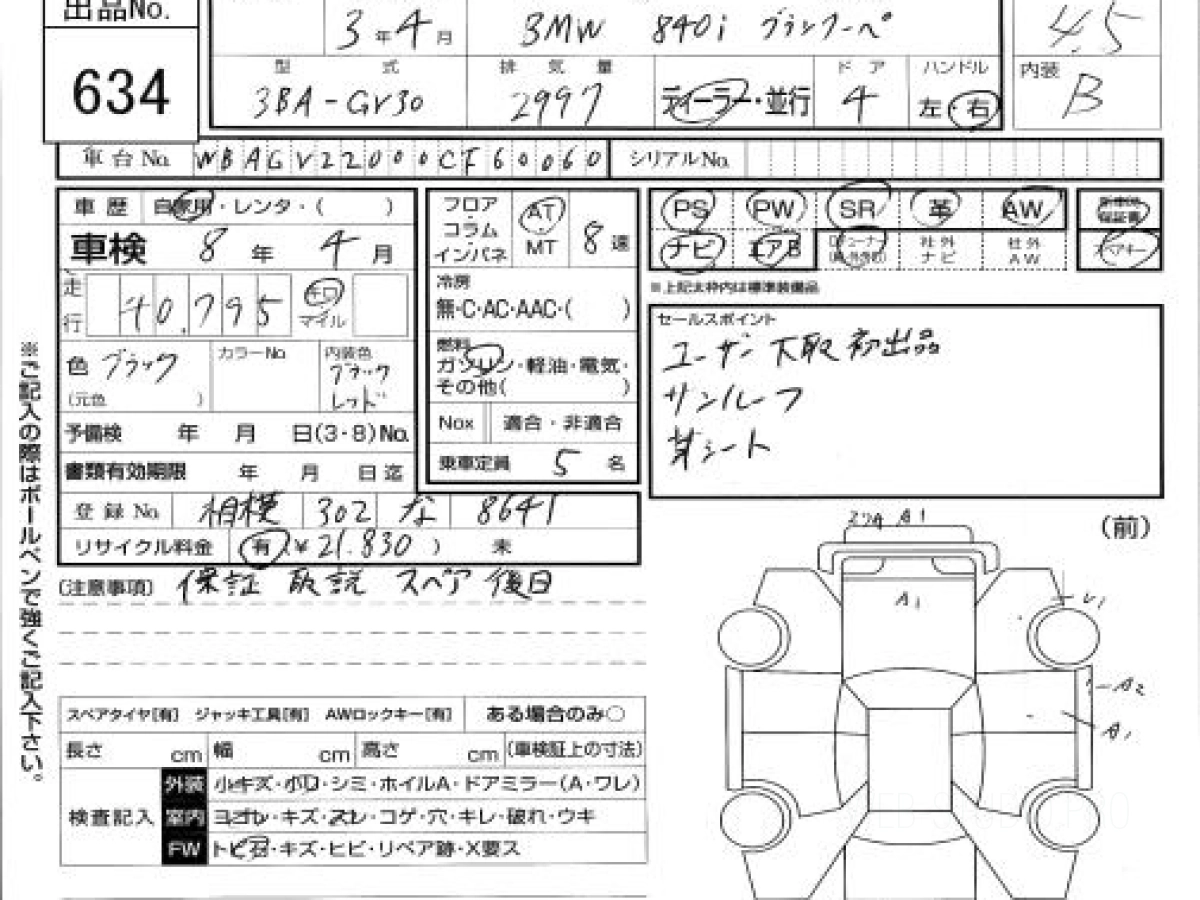 出品No.
634
3年4月 BMW 840i グランクーペ 4.5
型式 排気量 ドア ハンドル 内装
3BA-GV30 2997 ディーラー・並行 4 左・右 B
車台No. WBAGV22000CF60060 シリアルNo.
車歴 自家用・レンタ・( )
車検 8年4月
走行 40,795 キロ マイル
色 ブラック カラーNo. 内装色 ブラック レッド
(元色 )
予備検 年 月 日(3・8)No.
書類有効期限 年 月 日迄
フロア・コラム・インパネ AT・MT 8速
冷房
無・C・AC・AAC・( )
燃料
ガソリン・軽油・電気・
その他( )
Nox 適合・非適合
乗車定員 5名
登録No. 相模 302 な 8641
リサイクル料金 有(¥21,830) 未
PS PW SR 革 AW 保証書
ナビ エアB 社外ナビ 社外AW スペアキー
※上記太枠内は標準装備品
セールスポイント
ユーザー下取 初出品
サンルーフ
革シート
(注意事項) 保証 取説 スペア 後日
スペアタイヤ[有] ジャッキ工具[有] AWロックキー[有] ある場合のみ○
長さ cm 幅 cm 高さ cm (車検証上の寸法)
検査記入
外装 小キズ・小凹・シミ・ホイルA・ドアミラー(A・ワレ)
室内 ヨゴレ・キズ・スレ・コゲ・穴・キレ・破れ・ウキ
FW トビ石・キズ・ヒビ・リペア跡・X要ス
(前)
A1
A1
U1
A2
A1
※ご記入の際はボールペンで強くご記入下さい。